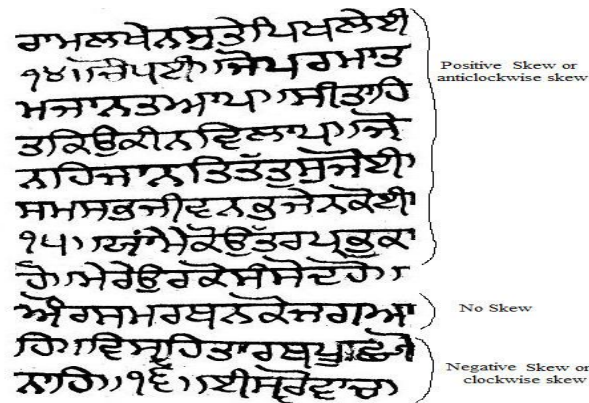 ਰਾਮਲਖੇਨਸੁਤੇਪਿਖਲੇਈ
੧੪॥ਚੌਪਈ॥ਜੋਪਰਮਾਤ
ਮਜਾਨਤਆਪ॥ਸੀਤਾਹਿ
ਤਕਿਉਕੀਨਵਿਲਾਪ॥ਜੋ
ਨਹਿਜਾਨਤਿਤੱਤੁਸੁਜੋਈ
ਸਮਸਭਜੀਵਨਭੁਜੇਨਕੋਈ
੧੫॥ਯਾਂਮੈਕੋਉੱਤਰਪ੍ਰਭੁਕਾ
ਹੈ॥ਮੇਰੇਉਰਕੋਸੰਸੇਦੋਹੈ॥
ਔਰਸਮਰਥਨਕੋਜਗਆ
ਹਿ॥ਵਿਸ੍ਵਹਿਤਾਰਥ
ਨਾਹਿ॥੧੬॥ਈਸ੍ਵਰੋਵਾਚ
Positive Skew or
anticlockwise skew
No Skew
Negative Skew or
clockwise skew